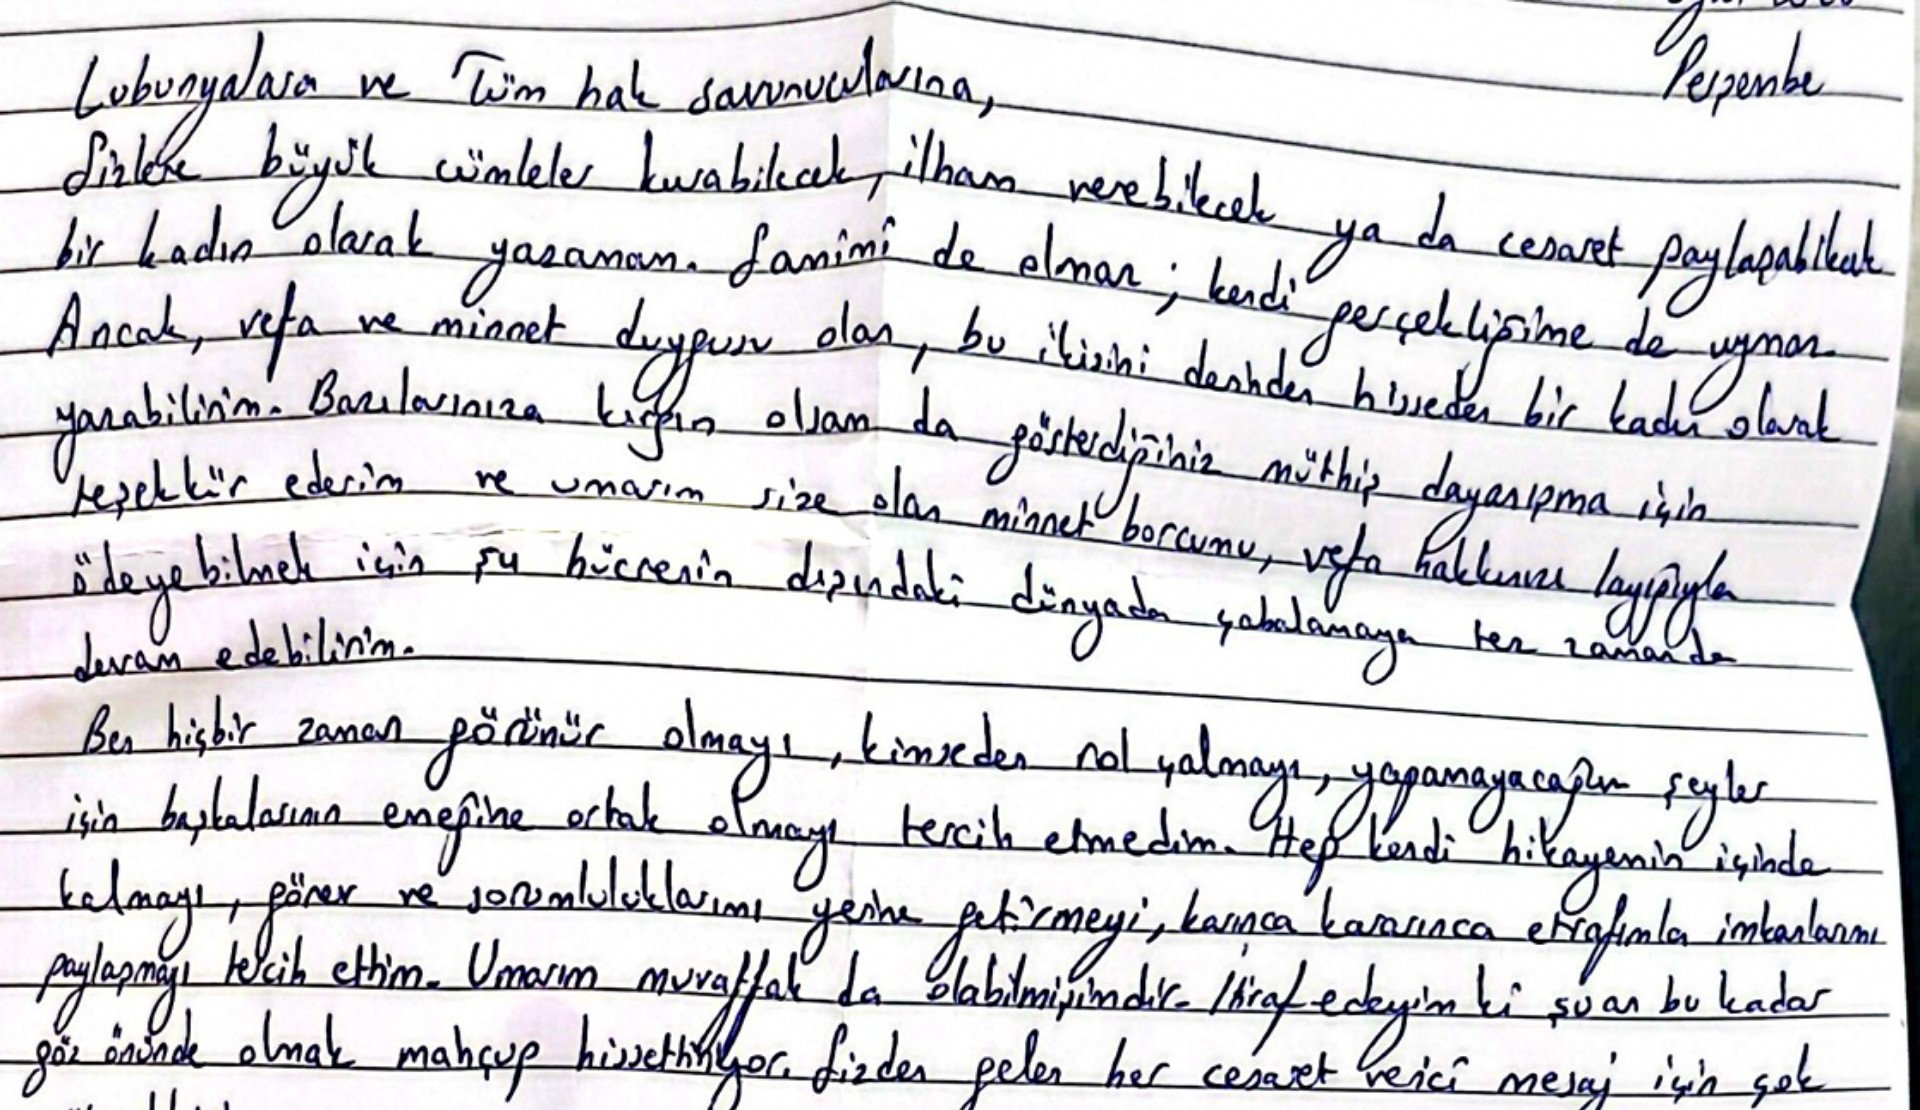 Perşembe
Lubunyalara ve Tüm hak savunucularına,
Sizlere büyük cümleler kurabilecek, ilham verebilecek ya da cesaret paylaşabilecek
bir kadın olarak yazamam. Samimi de olmaz; kendi gerçekliğime de uymaz.
Ancak, vefa ve minnet duygusu olan, bu ikisini derinden hisseden bir kadın olarak
yazabilirim. Bazılarınıza kırgın olsam da gösterdiğiniz müthiş dayanışma için
teşekkür ederim ve umarım size olan minnet borcumu, vefa hakkınızı layığıyla
ödeyebilmek için şu hücrenin dışındaki dünyada çabalamaya tez zamanda
devam edebilirim.
Ben hiçbir zaman görünür olmayı, kimseden rol çalmayı, yapamayacağım şeyler
için başkalarının emeğine ortak olmayı tercih etmedim. Hep kendi hikayemin içinde
kalmayı, görev ve sorumluluklarımı yerine getirmeyi, karınca kararınca etrafımla imkanlarımı
paylaşmayı tercih ettim. Umarım muvaffak da olabilmişimdir. İtiraf edeyim ki şu an bu kadar
göz önünde olmak mahçup hissettiriyor. Sizden gelen her cesaret verici mesaj için çok